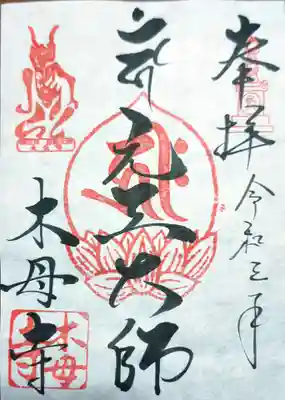 奉拝
令和三年
元三大師
木母寺
木母寺